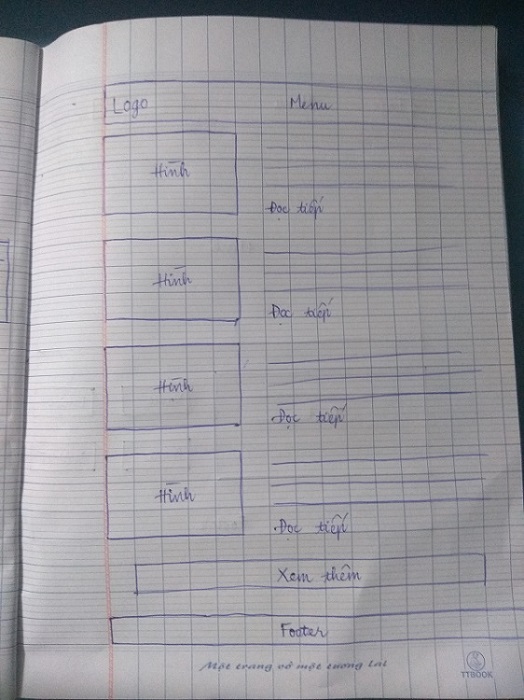 Logo Menu
Hình
Đọc tiếp
Hình
Đọc tiếp
Hình
Đọc tiếp
Hình
Đọc tiếp
Xem thêm
Footer
Một trang vở một tương lai
TTBOOK